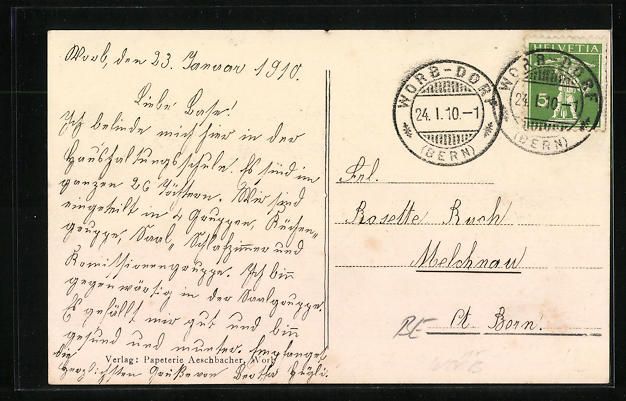 Worb, den 23. Januar 1910.
Liebe Base!
Ich befinde mich hier in der
Haushaltungsschule. Es sind im
ganzen 26 Töchtern. Wir sind
eingeteilt in 4 Gruppen, Küchen-
gruppe, Saal- Schlafzimmer und
Komissionengruppe. Ich bin
gegenwärtig in der Saalgruppe.
Es gefällt mir gut und bin
gesund und munter. Empfanget
die
herzlichsten Grüße von Bertha
Verlag: Papeterie Aeschbacher, Worb
WORB-DORF
24. I. 10.–1
(BERN)
HELVETIA
5
WORB-DORF
24. I. 10.–1
(BERN)
Frl.
Rosette
Melchnau
Ct. Bern.